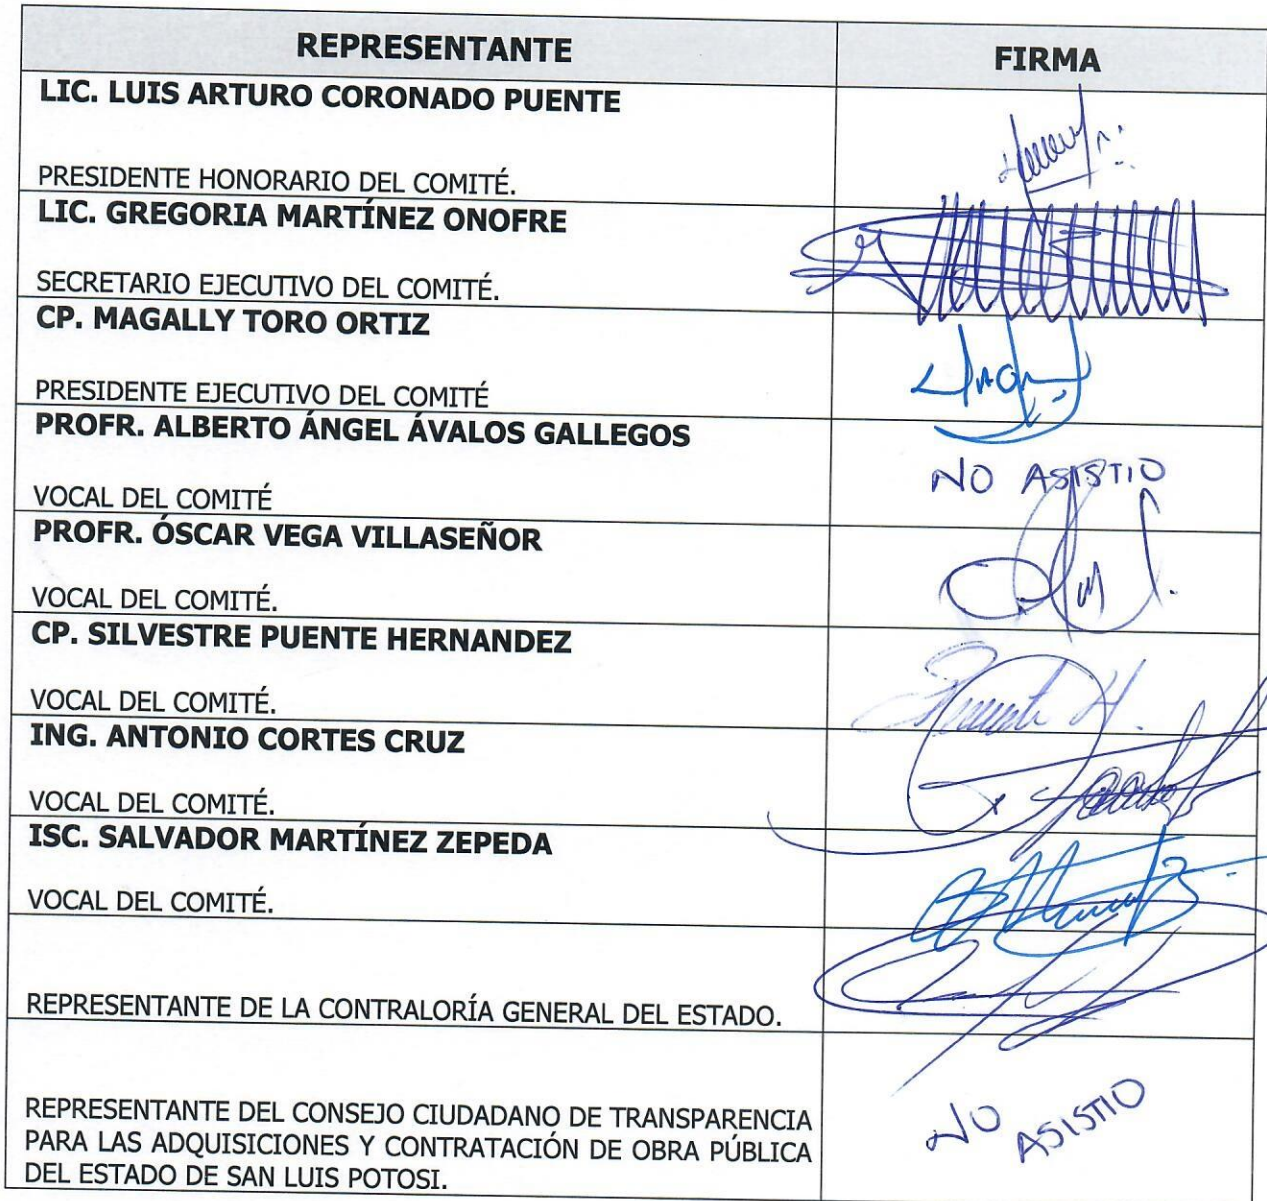 REPRESENTANTE
FIRMA
LIC. LUIS ARTURO CORONADO PUENTE
PRESIDENTE HONORARIO DEL COMITÉ.
LIC. GREGORIA MARTÍNEZ ONOFRE
SECRETARIO EJECUTIVO DEL COMITÉ.
CP. MAGALLY TORO ORTIZ
PRESIDENTE EJECUTIVO DEL COMITÉ
PROFR. ALBERTO ÁNGEL ÁVALOS GALLEGOS
VOCAL DEL COMITÉ
NO ASISTIO
PROFR. ÓSCAR VEGA VILLASEÑOR
VOCAL DEL COMITÉ.
CP. SILVESTRE PUENTE HERNANDEZ
VOCAL DEL COMITÉ.
ING. ANTONIO CORTES CRUZ
VOCAL DEL COMITÉ.
ISC. SALVADOR MARTÍNEZ ZEPEDA
VOCAL DEL COMITÉ.
REPRESENTANTE DE LA CONTRALORÍA GENERAL DEL ESTADO.
REPRESENTANTE DEL CONSEJO CIUDADANO DE TRANSPARENCIA
PARA LAS ADQUISICIONES Y CONTRATACIÓN DE OBRA PÚBLICA
DEL ESTADO DE SAN LUIS POTOSI.
NO ASISTIO